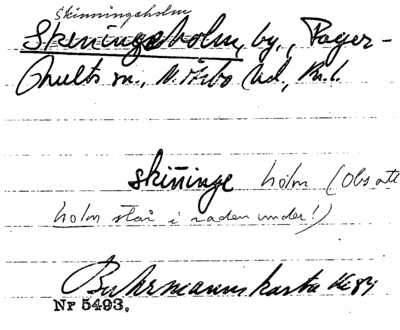 Skinningeholm
Skiningeholm, by, Fager-
hults sn, N. Åsbo hd, Kr. l.
skīninge holm (Obs att
holm står i raden under!)
Buhrmanns karta 1684
Nr 5493.